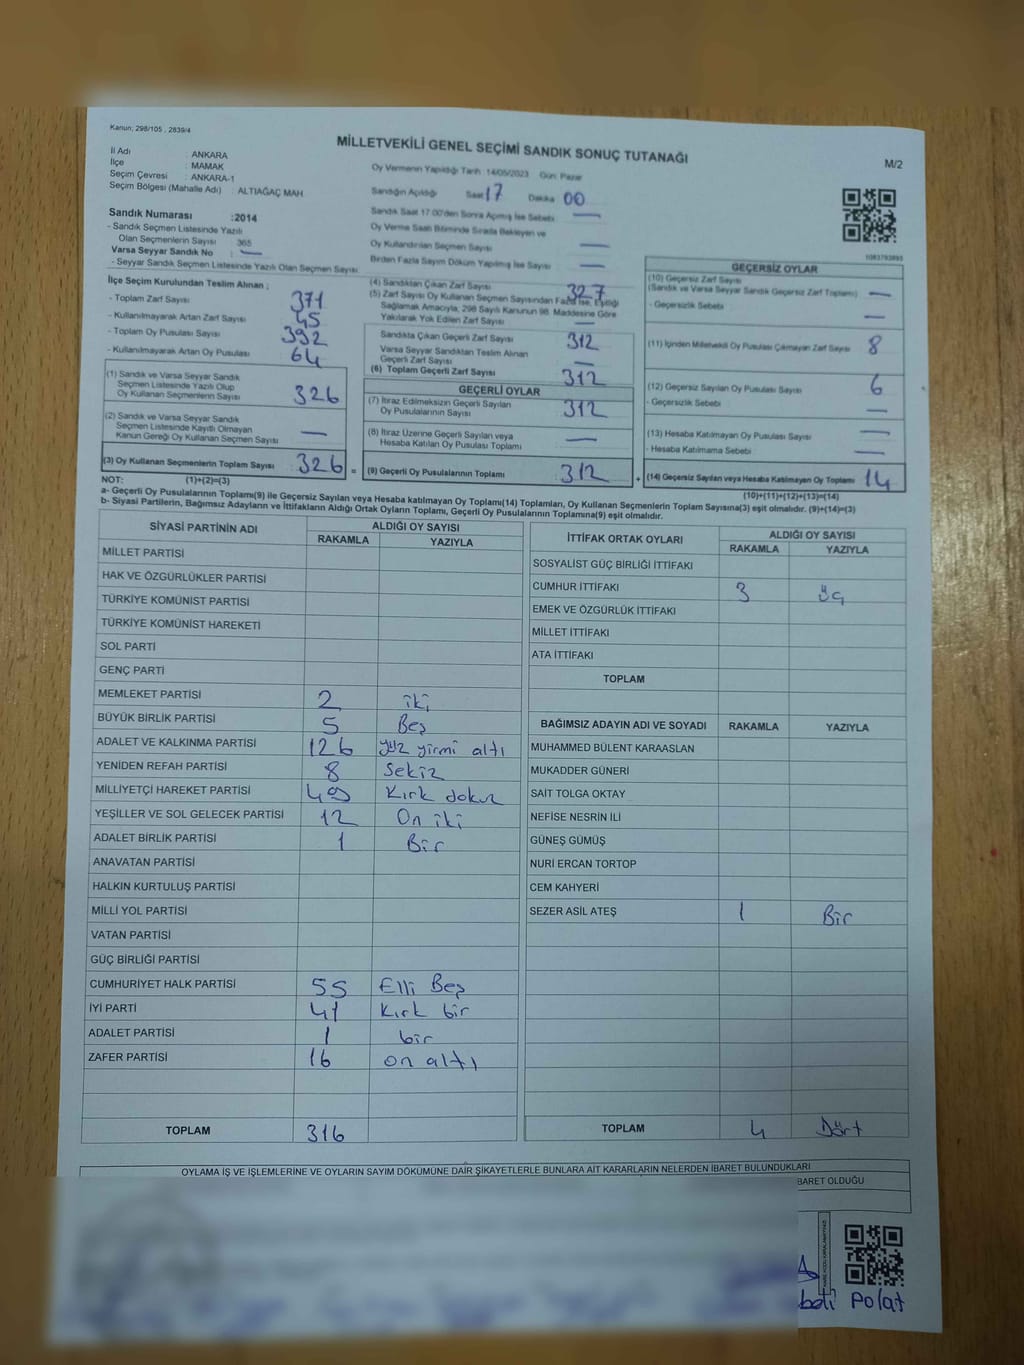 Kanun; 298/105 , 2839/4
MİLLETVEKİLİ GENEL SEÇİMİ SANDIK SONUÇ TUTANAĞI
M/2
İl Adı : ANKARA
İlçe : MAMAK
Seçim Çevresi : ANKARA-1
Seçim Bölgesi (Mahalle Adı) : ALTIAĞAÇ MAH.
Oy Vermenin Yapıldığı Tarih 14/05/2023 Gün: Pazar
Sandığın Açıldığı Saat 17 Dakika 00
Sandık Saat 17:00'den Sonra Açılmış İse Sebebi —
Oy Verme Saati Bitiminde Sırada Bekleyen ve
Oy Kullandırılan Seçmen Sayısı —
Birden Fazla Sayım Döküm Yapılmış İse Sayısı —
Sandık Numarası :2014
- Sandık Seçmen Listesinde Yazılı
Olan Seçmenlerin Sayısı 365
Varsa Seyyar Sandık No : —
- Seyyar Sandık Seçmen Listesinde Yazılı Olan Seçmen Sayısı:
1083793893
İlçe Seçim Kurulundan Teslim Alınan ;
- Toplam Zarf Sayısı 371
- Kullanılmayarak Artan Zarf Sayısı 45
- Toplam Oy Pusulası Sayısı 392
- Kullanılmayarak Artan Oy Pusulası 64
(1) Sandık ve Varsa Seyyar Sandık
Seçmen Listesinde Yazılı Olup
Oy Kullanan Seçmenlerin Sayısı 326
(2) Sandık ve Varsa Seyyar Sandık
Seçmen Listesinde Kayıtlı Olmayan
Kanun Gereği Oy Kullanan Seçmen Sayısı —
(3) Oy Kullanan Seçmenlerin Toplam Sayısı 326 =
(4) Sandıktan Çıkan Zarf Sayısı 327
(5) Zarf Sayısı Oy Kullanan Seçmen Sayısından Fazla İse, Eşitliği
Sağlamak Amacıyla, 298 Sayılı Kanunun 98. Maddesine Göre
Yakılarak Yok Edilen Zarf Sayısı —
Sandıkta Çıkan Geçerli Zarf Sayısı 312
Varsa Seyyar Sandıktan Teslim Alınan
Geçerli Zarf Sayısı —
(6) Toplam Geçerli Zarf Sayısı 312
GEÇERLİ OYLAR
(7) İtiraz Edilmeksizin Geçerli Sayılan
Oy Pusulalarının Sayısı 312
(8) İtiraz Üzerine Geçerli Sayılan veya
Hesaba Katılan Oy Pusulası Toplamı —
(9) Geçerli Oy Pusulalarının Toplamı 312 +
GEÇERSİZ OYLAR
(10) Geçersiz Zarf Sayısı
(Sandık ve Varsa Seyyar Sandık Geçersiz Zarf Toplamı) —
- Geçersizlik Sebebi —
(11) İçinden Milletvekili Oy Pusulası Çıkmayan Zarf Sayısı 8
(12) Geçersiz Sayılan Oy Pusulası Sayısı 6
- Geçersizlik Sebebi —
(13) Hesaba Katılmayan Oy Pusulası Sayısı —
- Hesaba Katılmama Sebebi —
(14) Geçersiz Sayılan veya Hesaba Katılmayan Oy Toplamı 14
NOT: (1)+(2)=(3) (10)+(11)+(12)+(13)=(14)
a- Geçerli Oy Pusulalarının Toplamı(9) ile Geçersiz Sayılan veya Hesaba katılmayan Oy Toplamı(14) Toplamları, Oy Kullanan Seçmenlerin Toplam Sayısına(3) eşit olmalıdır. (9)+(14)=(3)
b- Siyasi Partilerin, Bağımsız Adayların ve İttifakların Aldığı Ortak Oyların Toplamı, Geçerli Oy Pusulalarının Toplamına(9) eşit olmalıdır.
SİYASİ PARTİNİN ADI ALDIĞI OY SAYISI
RAKAMLA YAZIYLA
MİLLET PARTİSİ
HAK VE ÖZGÜRLÜKLER PARTİSİ
TÜRKİYE KOMÜNİST PARTİSİ
TÜRKİYE KOMÜNİST HAREKETİ
SOL PARTİ
GENÇ PARTİ
MEMLEKET PARTİSİ 2 iki
BÜYÜK BİRLİK PARTİSİ 5 Beş
ADALET VE KALKINMA PARTİSİ 126 yüz yirmi altı
YENİDEN REFAH PARTİSİ 8 Sekiz
MİLLİYETÇİ HAREKET PARTİSİ 49 Kırk dokuz
YEŞİLLER VE SOL GELECEK PARTİSİ 12 On iki
ADALET BİRLİK PARTİSİ 1 Bir
ANAVATAN PARTİSİ
HALKIN KURTULUŞ PARTİSİ
MİLLİ YOL PARTİSİ
VATAN PARTİSİ
GÜÇ BİRLİĞİ PARTİSİ
CUMHURİYET HALK PARTİSİ 55 Elli Beş
İYİ PARTİ 41 Kırk bir
ADALET PARTİSİ 1 bir
ZAFER PARTİSİ 16 on altı
TOPLAM 316
İTTİFAK ORTAK OYLARI ALDIĞI OY SAYISI
RAKAMLA YAZIYLA
SOSYALİST GÜÇ BİRLİĞİ İTTİFAKI
CUMHUR İTTİFAKI 3 üç
EMEK VE ÖZGÜRLÜK İTTİFAKI
MİLLET İTTİFAKI
ATA İTTİFAKI
TOPLAM
BAĞIMSIZ ADAYIN ADI VE SOYADI RAKAMLA YAZIYLA
MUHAMMED BÜLENT KARAASLAN
MUKADDER GÜNERİ
SAİT TOLGA OKTAY
NEFİSE NESRİN İLİ
GÜNEŞ GÜMÜŞ
NURİ ERCAN TORTOP
CEM KAHYERİ
SEZER ASİL ATEŞ 1 Bir
TOPLAM 4 Dört
OYLAMA İŞ VE İŞLEMLERİNE VE OYLARIN SAYIM DÖKÜMÜNE DAİR ŞİKAYETLERLE BUNLARA AİT KARARLARIN NELERDEN İBARET BULUNDUKLARI
BARET OLDUĞU
Polat